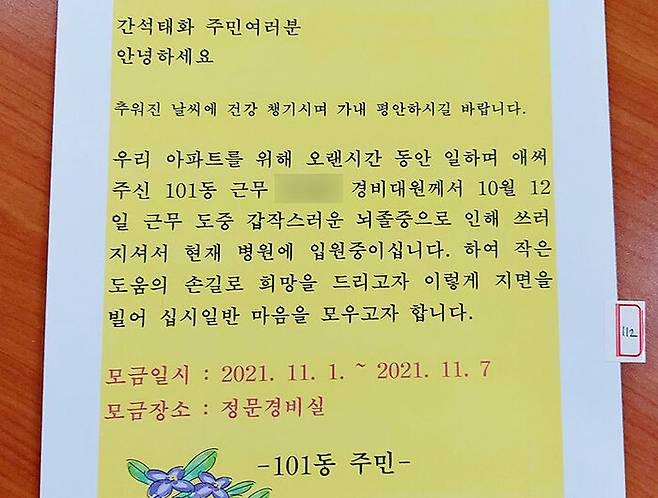 간석태화 주민여러분
안녕하세요
추워진 날씨에 건강 챙기시며 가내 평안하시길 바랍니다.
우리 아파트를 위해 오랜시간 동안 일하며 애써
주신 101동 근무 경비대원께서 10월 12
일 근무 도중 갑작스러운 뇌졸중으로 인해 쓰러
지셔서 현재 병원에 입원중이십니다. 하여 작은
도움의 손길로 희망을 드리고자 이렇게 지면을
빌어 십시일반 마음을 모우고자 합니다.
모금일시 : 2021. 11. 1. ~ 2021. 11. 7
모금장소 : 정문경비실
-101동 주민-
112